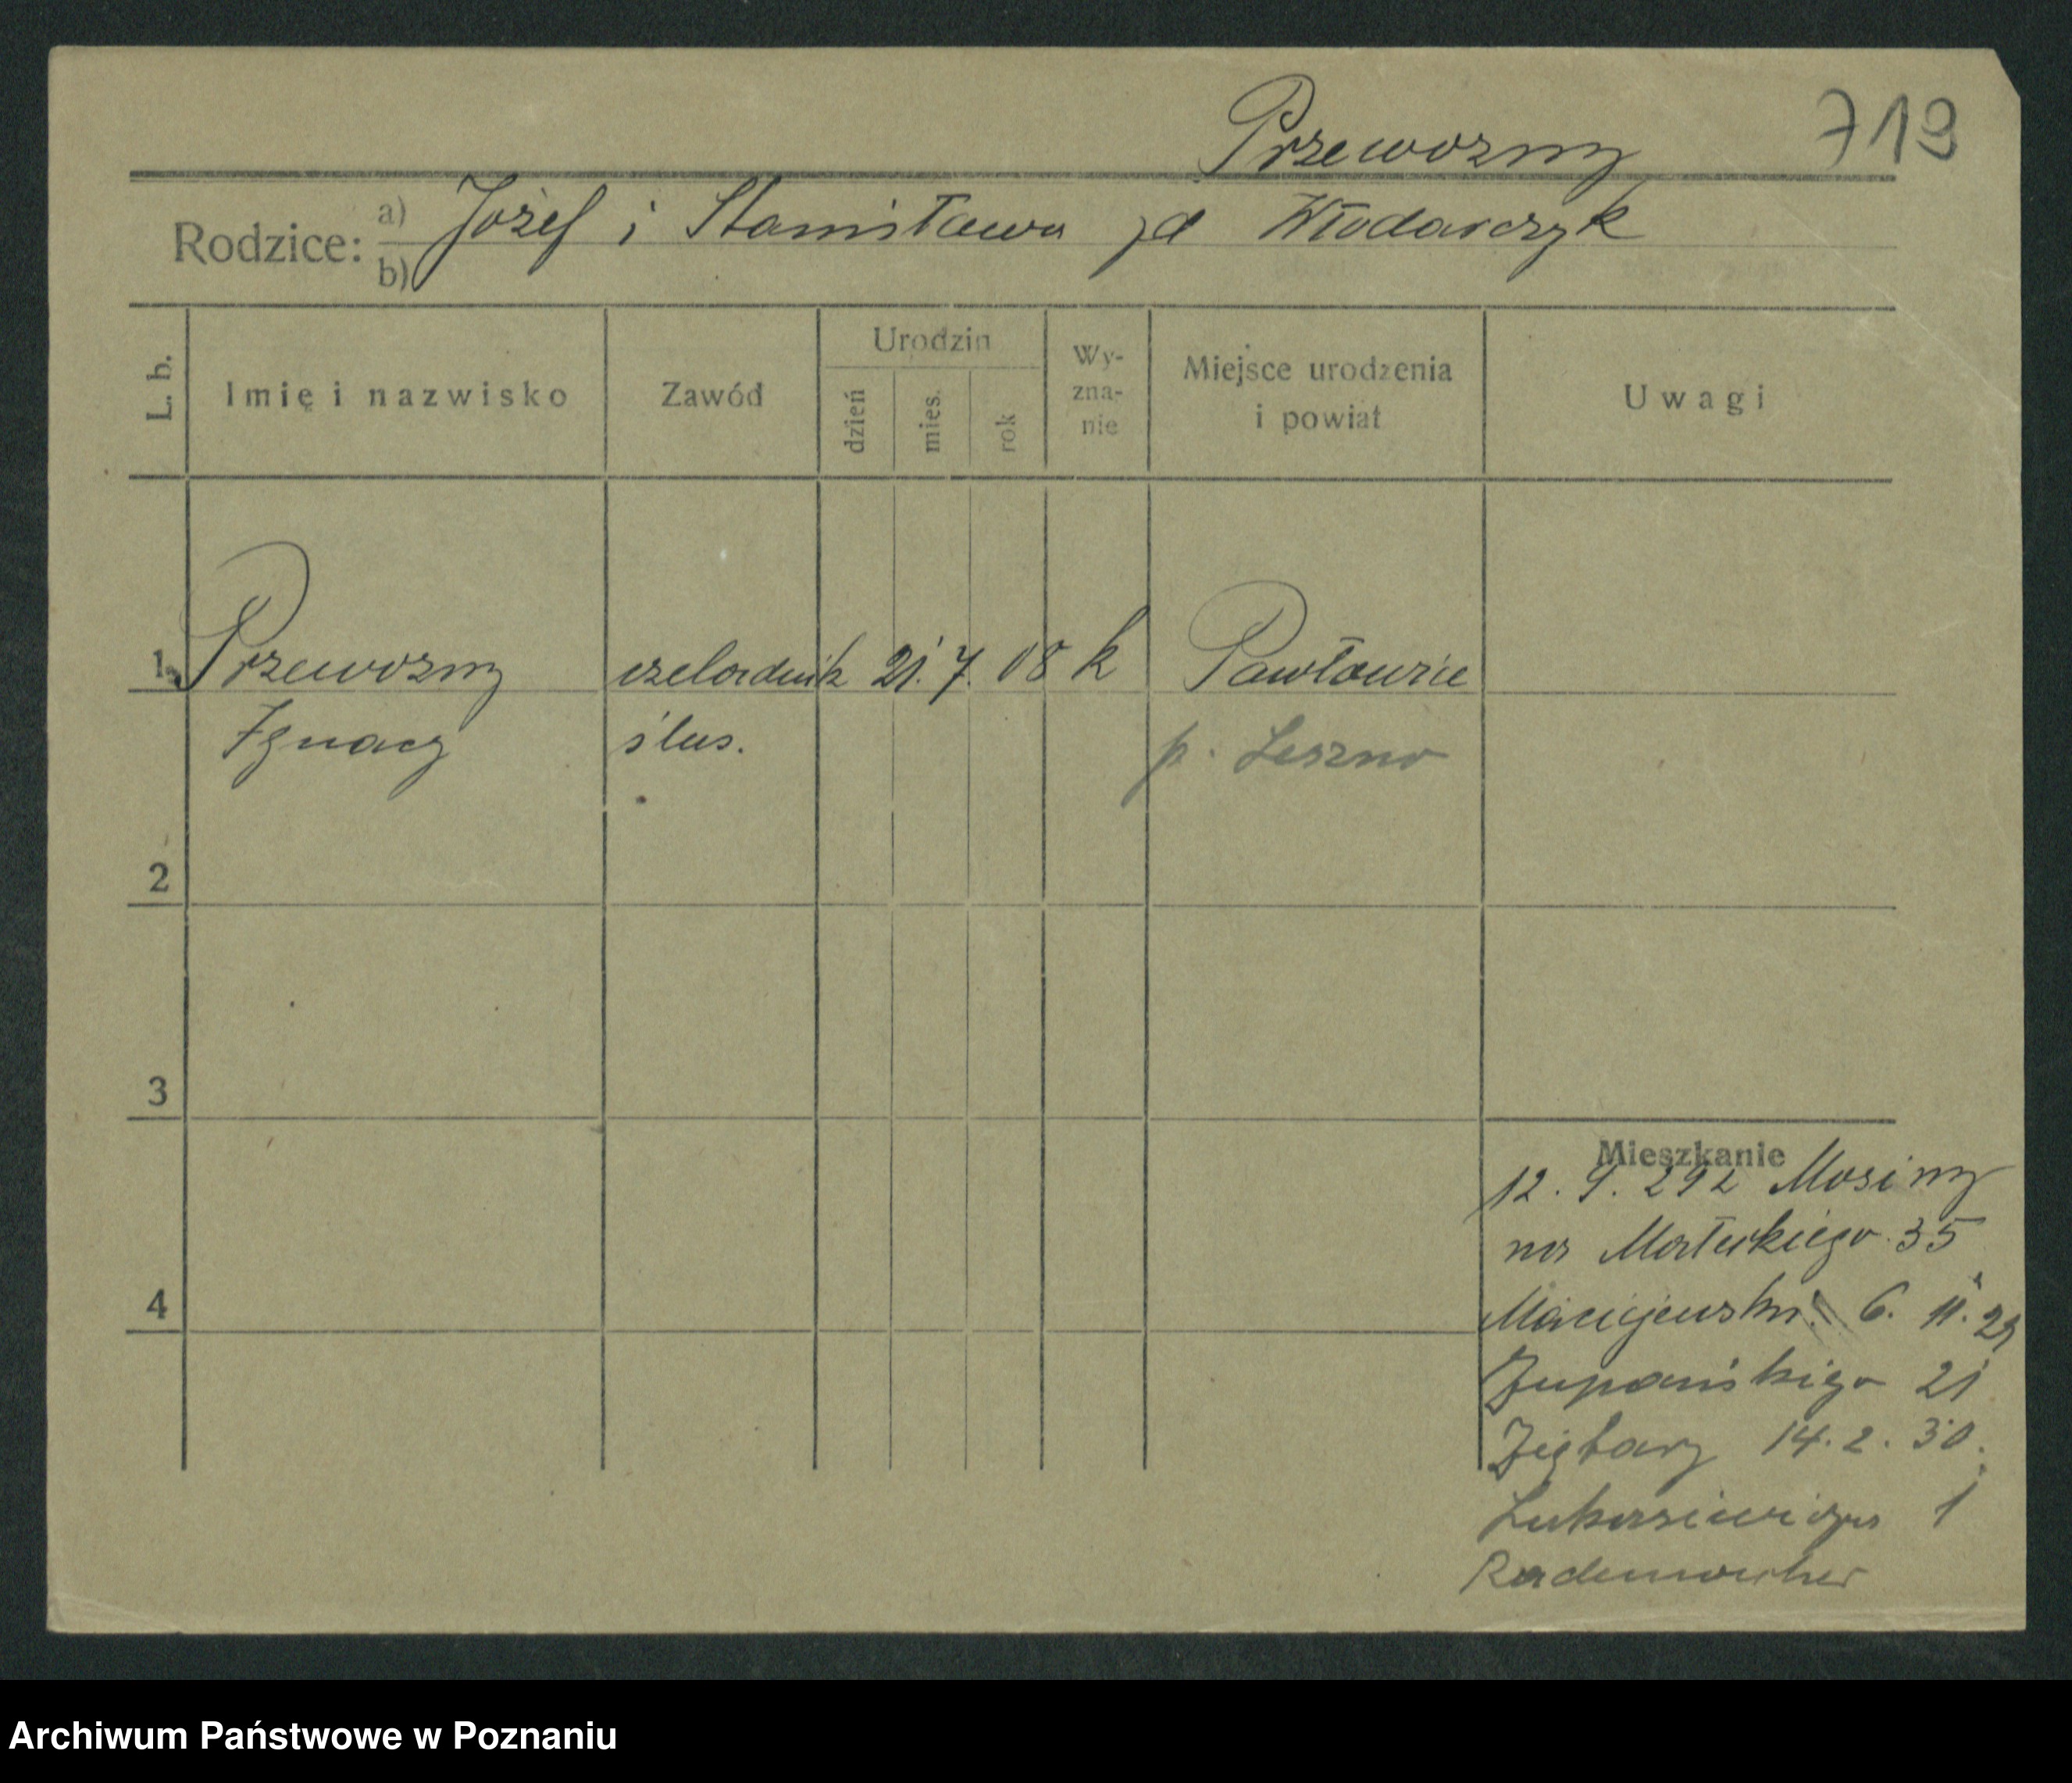 Przewozny 719
Rodzice: a) Józef i Stanisława zd Włodarczyk
b)
L. b. Imię i nazwisko Zawód Urodzin dzień mies. rok Wy-zna-nie Miejsce urodzenia i powiat Uwagi
1 Przewozny czeladnik 21. 7. 08 k Pawłowice
Ignacy ślus. p. Leszno
2
3
4
Mieszkanie
12. 9. 29 z Mosiny
na Małeckiego 35
Maciejewska 6. 11. 29
Żupańskiego 21
Ziętary 14. 2. 30.
Łukasiewicza 1
Rademacher
Archiwum Państwowe w Poznaniu